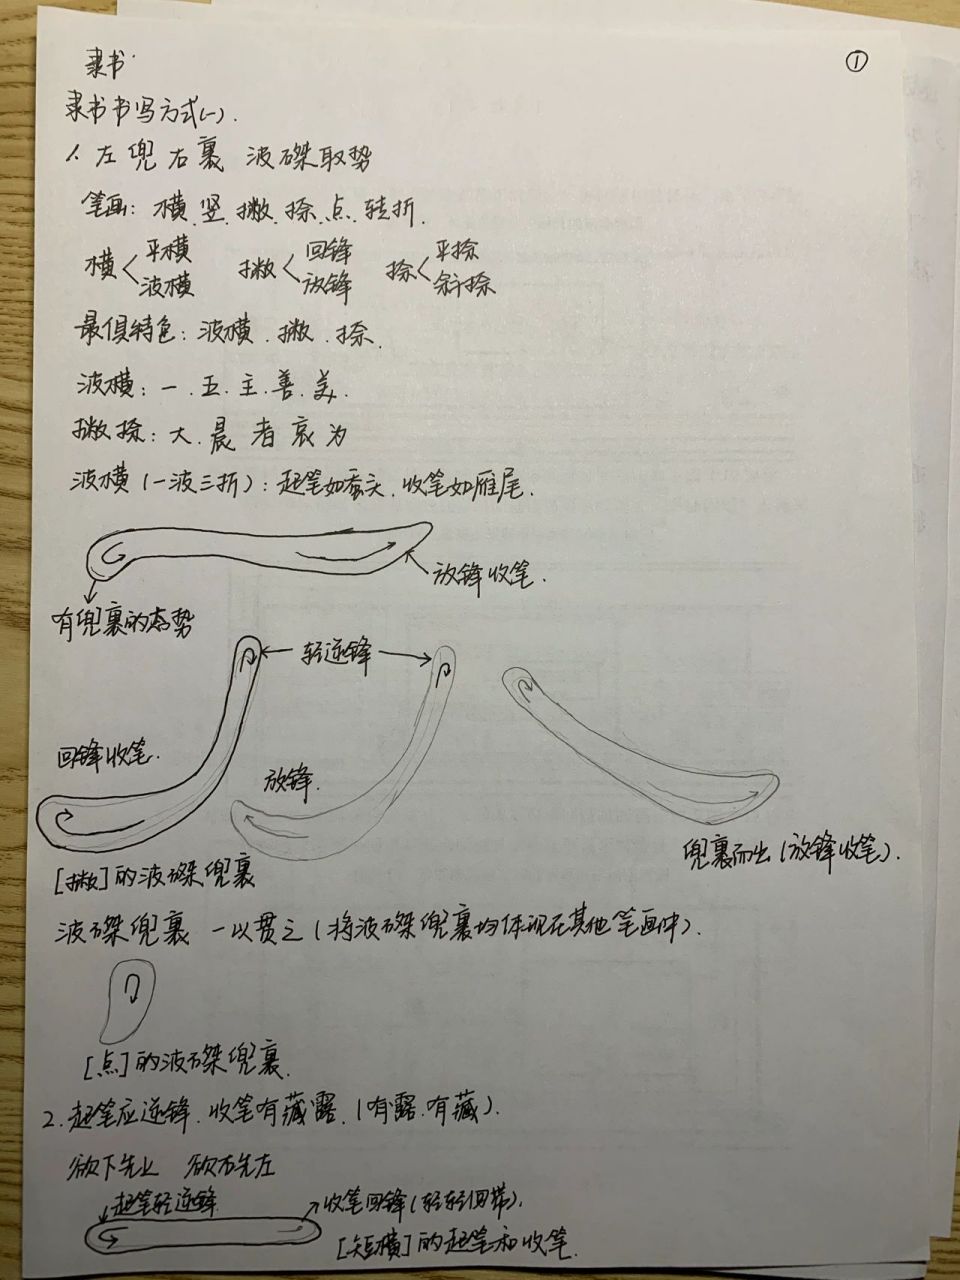 ①
隶书
隶书书写方式(一).
1. 左兜右裹 波磔取势
笔画: 横.竖.撇.捺.点.转折.
横 平横 波横 撇 回锋 放锋 捺 平捺 斜捺
最俱特色: 波横.撇.捺.
波横: 一.五.主.善.美.
撇捺: 大.晨 者 哀 为
波横(一波三折): 起笔如蚕头.收笔如雁尾.
放锋收笔.
有兜裹的态势
轻逆锋
回锋收笔.
放锋.
兜裹而出(放锋收笔).
[撇]的波磔兜裹
波磔兜裹 一以贯之(将波磔兜裹均体现在其他笔画中).
[点]的波磔兜裹.
2. 起笔应逆锋.收笔有藏露.(有露.有藏).
欲下先上 欲右先左
起笔轻逆锋 收笔回锋(轻轻回带).
[短横]的起笔和收笔.